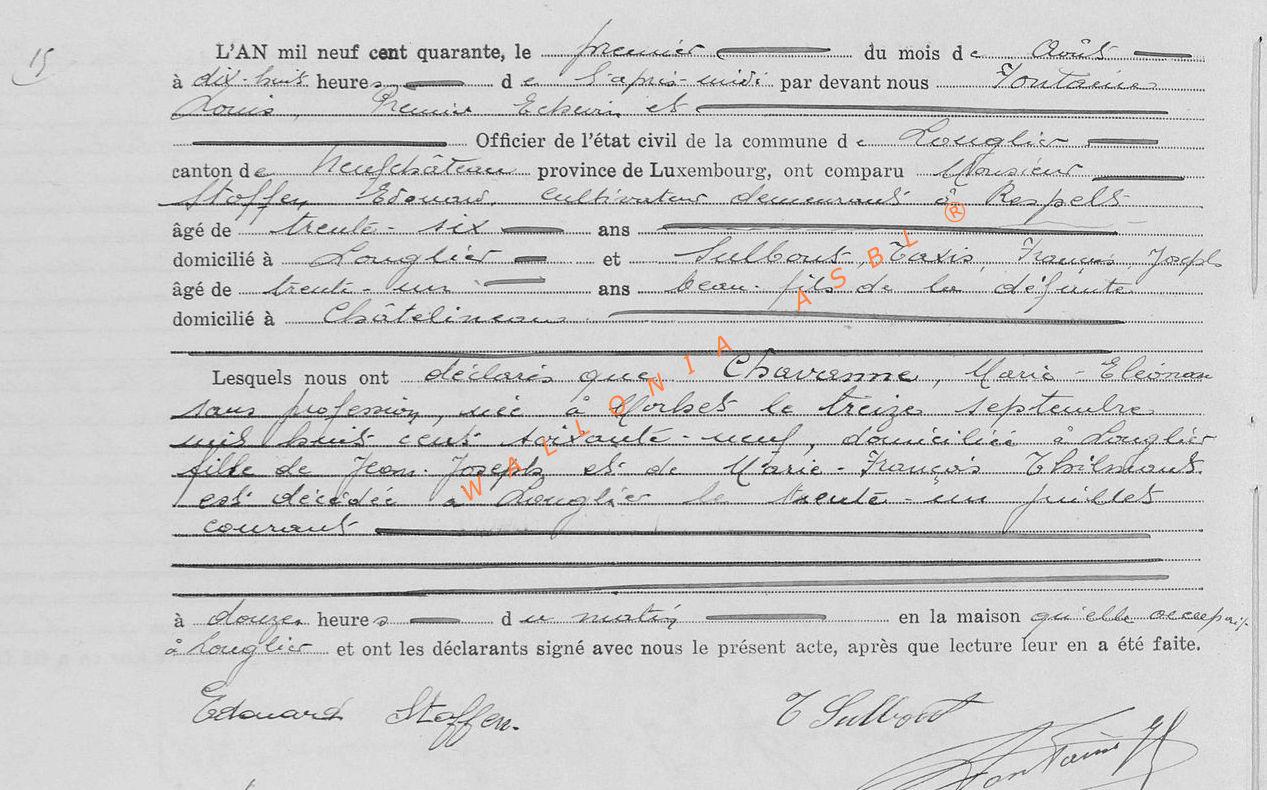 15
L'AN mil neuf cent quarante, le premier du mois de Août
à dix-huit heures de l'après-midi par devant nous Fontaine
Louis, Premier Echevin et
Officier de l'état civil de la commune de Longlier
canton de Neufchâteau province de Luxembourg, ont comparu Monsieur
Staffen Edouard, cultivateur demeurant à Respelt
âgé de trente-six ans
domicilié à Longlier et Sulbout, Taxis, François, Joseph
âgé de trente-un ans beau-fils de la défunte
domicilié à Châtelineau
Lesquels nous ont déclaré que Chavanne, Marie-Eléonore
sans profession, née à Morhet le treize septembre
mil huit cent soixante-neuf, domiciliée à Longlier
fille de Jean-Joseph et de Marie-François Thilmant
est décédée à Longlier le trente-un juillet
courant
à douze heures du matin en la maison qu'elle occupait
à Longlier et ont les déclarants signé avec nous le présent acte, après que lecture leur en a été faite.
Edouard Staffen. T Sulbout
Fontaine
WALLONIA ASBL ®